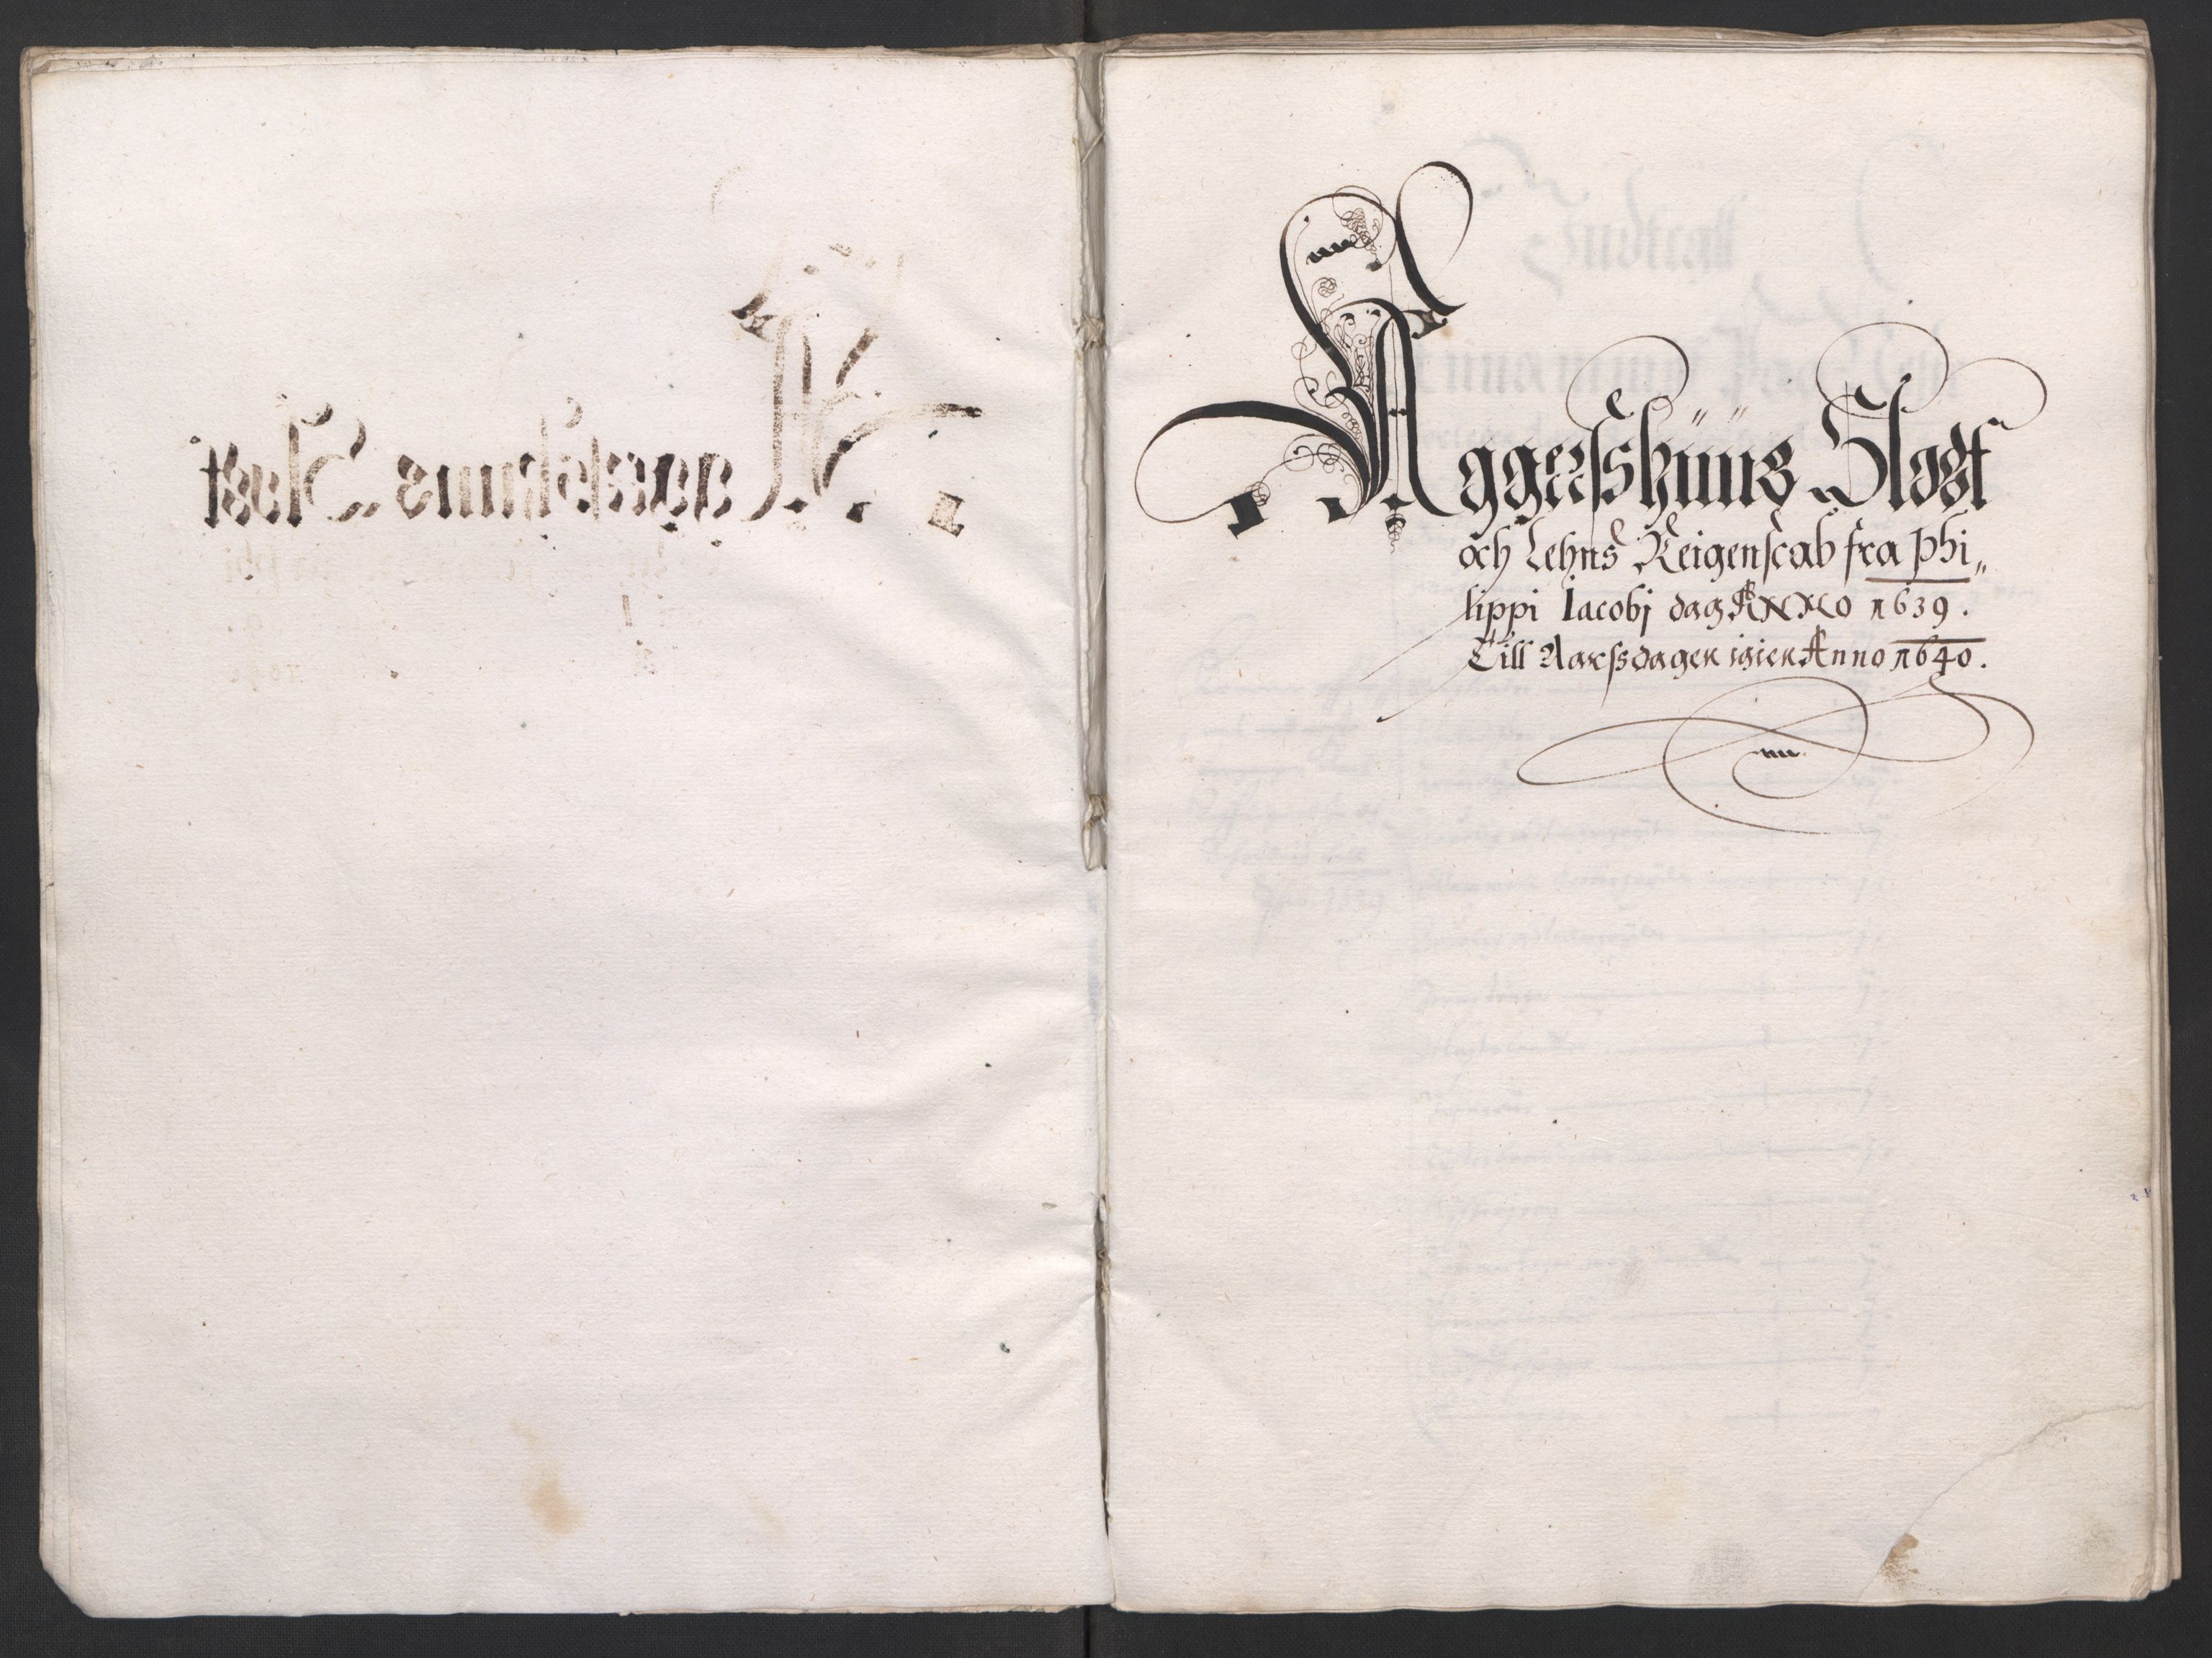 Aggerſshüüs Slodt
och Lehns Reigenſcab fra Phi„
lippi Iacobj dag ANNO 1639.
Till Aarſsdagen igien Anno 1640.